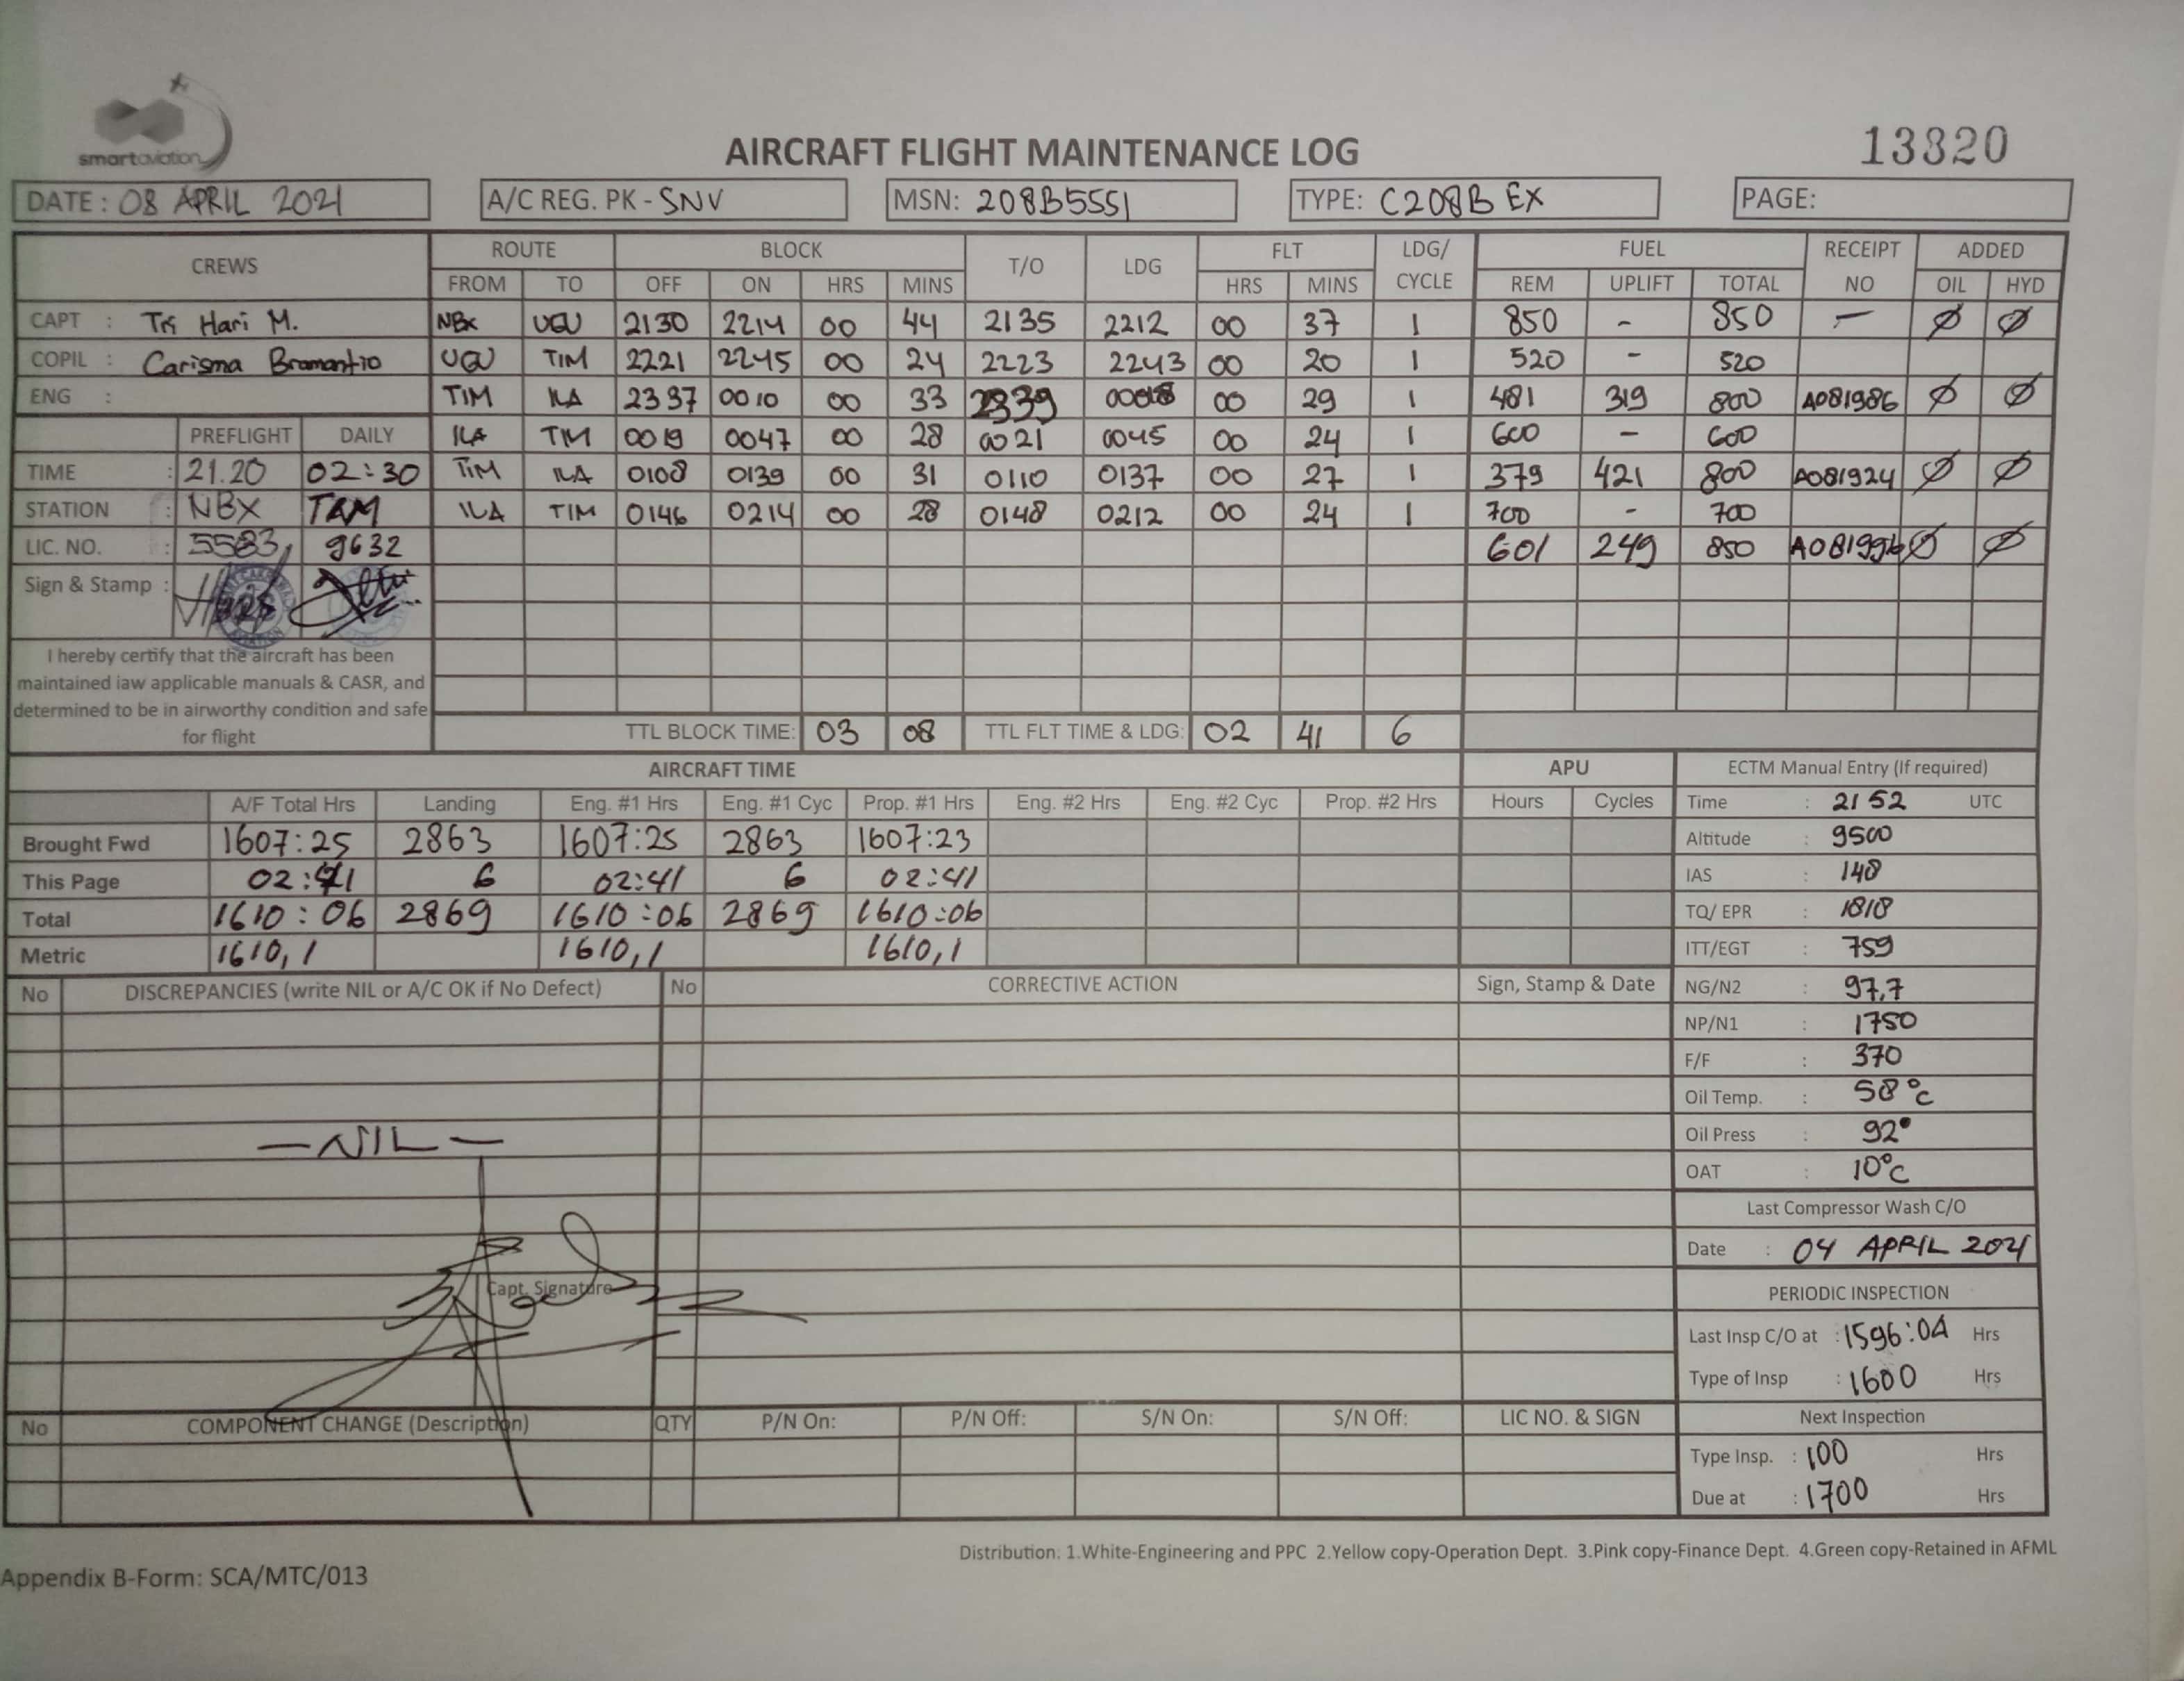 smartaviation
AIRCRAFT FLIGHT MAINTENANCE LOG
13820
DATE : 08 APRIL 2021 A/C REG. PK - SNV MSN: 208B5551 TYPE: C208B EX PAGE:
CREWS ROUTE BLOCK T/O LDG FLT LDG/ CYCLE FUEL RECEIPT NO ADDED
FROM TO OFF ON HRS MINS HRS MINS REM UPLIFT TOTAL OIL HYD
CAPT : Tri Hari M. NBX UGU 2130 2214 00 44 2135 2212 00 37 1 850 - 850 - Ø Ø
COPIL : Carisma Bramantio UGU TIM 2221 2245 00 24 2223 2243 00 20 1 520 - 520
ENG : TIM ILA 2337 0010 00 33 2339 0008 00 29 1 481 319 800 A081986 Ø Ø
PREFLIGHT DAILY ILA TIM 0019 0047 00 28 0021 0045 00 24 1 600 - 600
TIME : 21.20 02:30 TIM ILA 0108 0139 00 31 0110 0137 00 27 1 379 421 800 A081924 Ø Ø
STATION : NBX TAM ILA TIM 0146 0214 00 28 0148 0212 00 24 1 700 - 700
LIC. NO. : 5583 9632 601 249 850 Ø Ø
Sign & Stamp :
I hereby certify that the aircraft has been
maintained iaw applicable manuals & CASR, and
determined to be in airworthy condition and safe
for flight
TTL BLOCK TIME: 03 08 TTL FLT TIME & LDG: 02 41 6
AIRCRAFT TIME APU ECTM Manual Entry (If required)
A/F Total Hrs Landing Eng. #1 Hrs Eng. #1 Cyc Prop. #1 Hrs Eng. #2 Hrs Eng. #2 Cyc Prop. #2 Hrs Hours Cycles Time : 2152 UTC
Brought Fwd 1607:25 2863 1607:25 2863 1607:23 Altitude : 9500
This Page 02:41 6 02:41 6 02:41 IAS : 148
Total 1610:06 2869 1610:06 2869 1610:06 TQ/ EPR : 1818
Metric 1610,1 1610,1 1610,1 ITT/EGT : 759
No DISCREPANCIES (write NIL or A/C OK if No Defect) No CORRECTIVE ACTION Sign, Stamp & Date NG/N2 : 97,7
NP/N1 : 1750
F/F : 370
Oil Temp. : 58°C
— NIL — Oil Press : 92°
OAT : 10°C
Last Compressor Wash C/O
Date : 04 APRIL 2021
Capt. Signature
PERIODIC INSPECTION
Last Insp C/O at : 1596:04 Hrs
Type of Insp : 1600 Hrs
No COMPONENT CHANGE (Description) QTY P/N On: P/N Off: S/N On: S/N Off: LIC NO. & SIGN Next Inspection
Type Insp. : 100 Hrs
Due at : 1700 Hrs
Distribution: 1.White-Engineering and PPC 2.Yellow copy-Operation Dept. 3.Pink copy-Finance Dept. 4.Green copy-Retained in AFML
Appendix B-Form: SCA/MTC/013